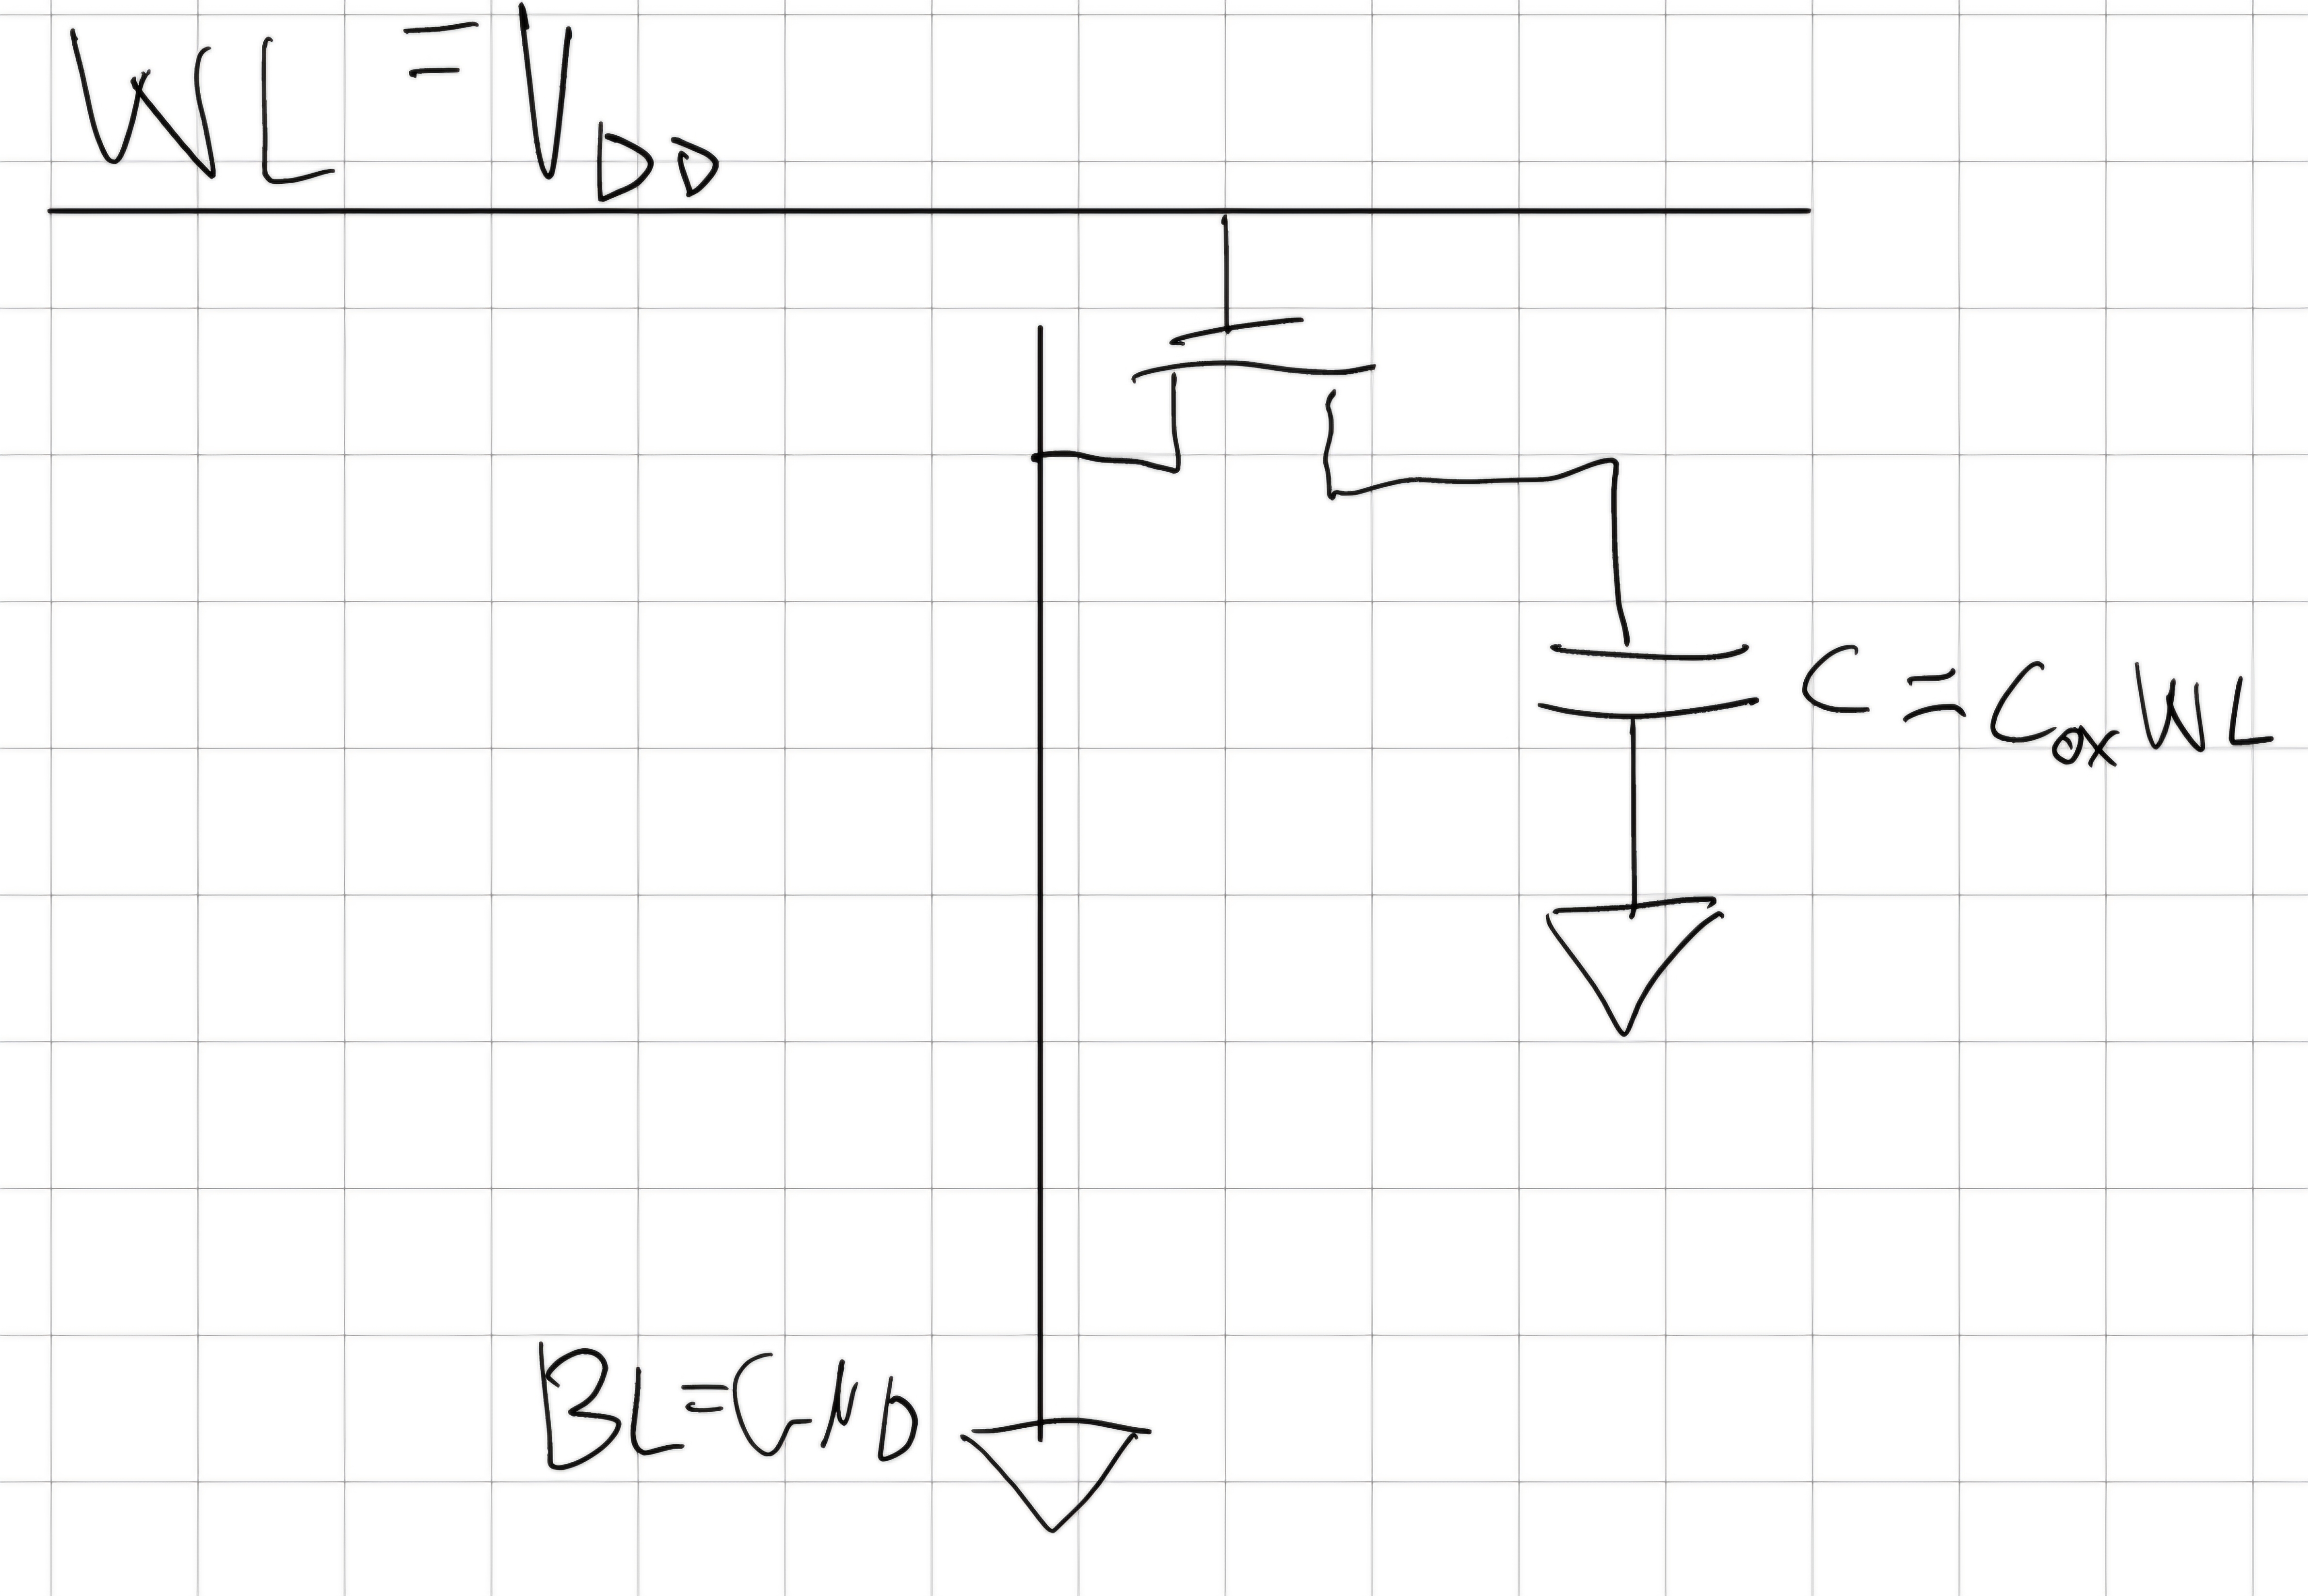 WL = VDD
C = CoxWL
BL=GND